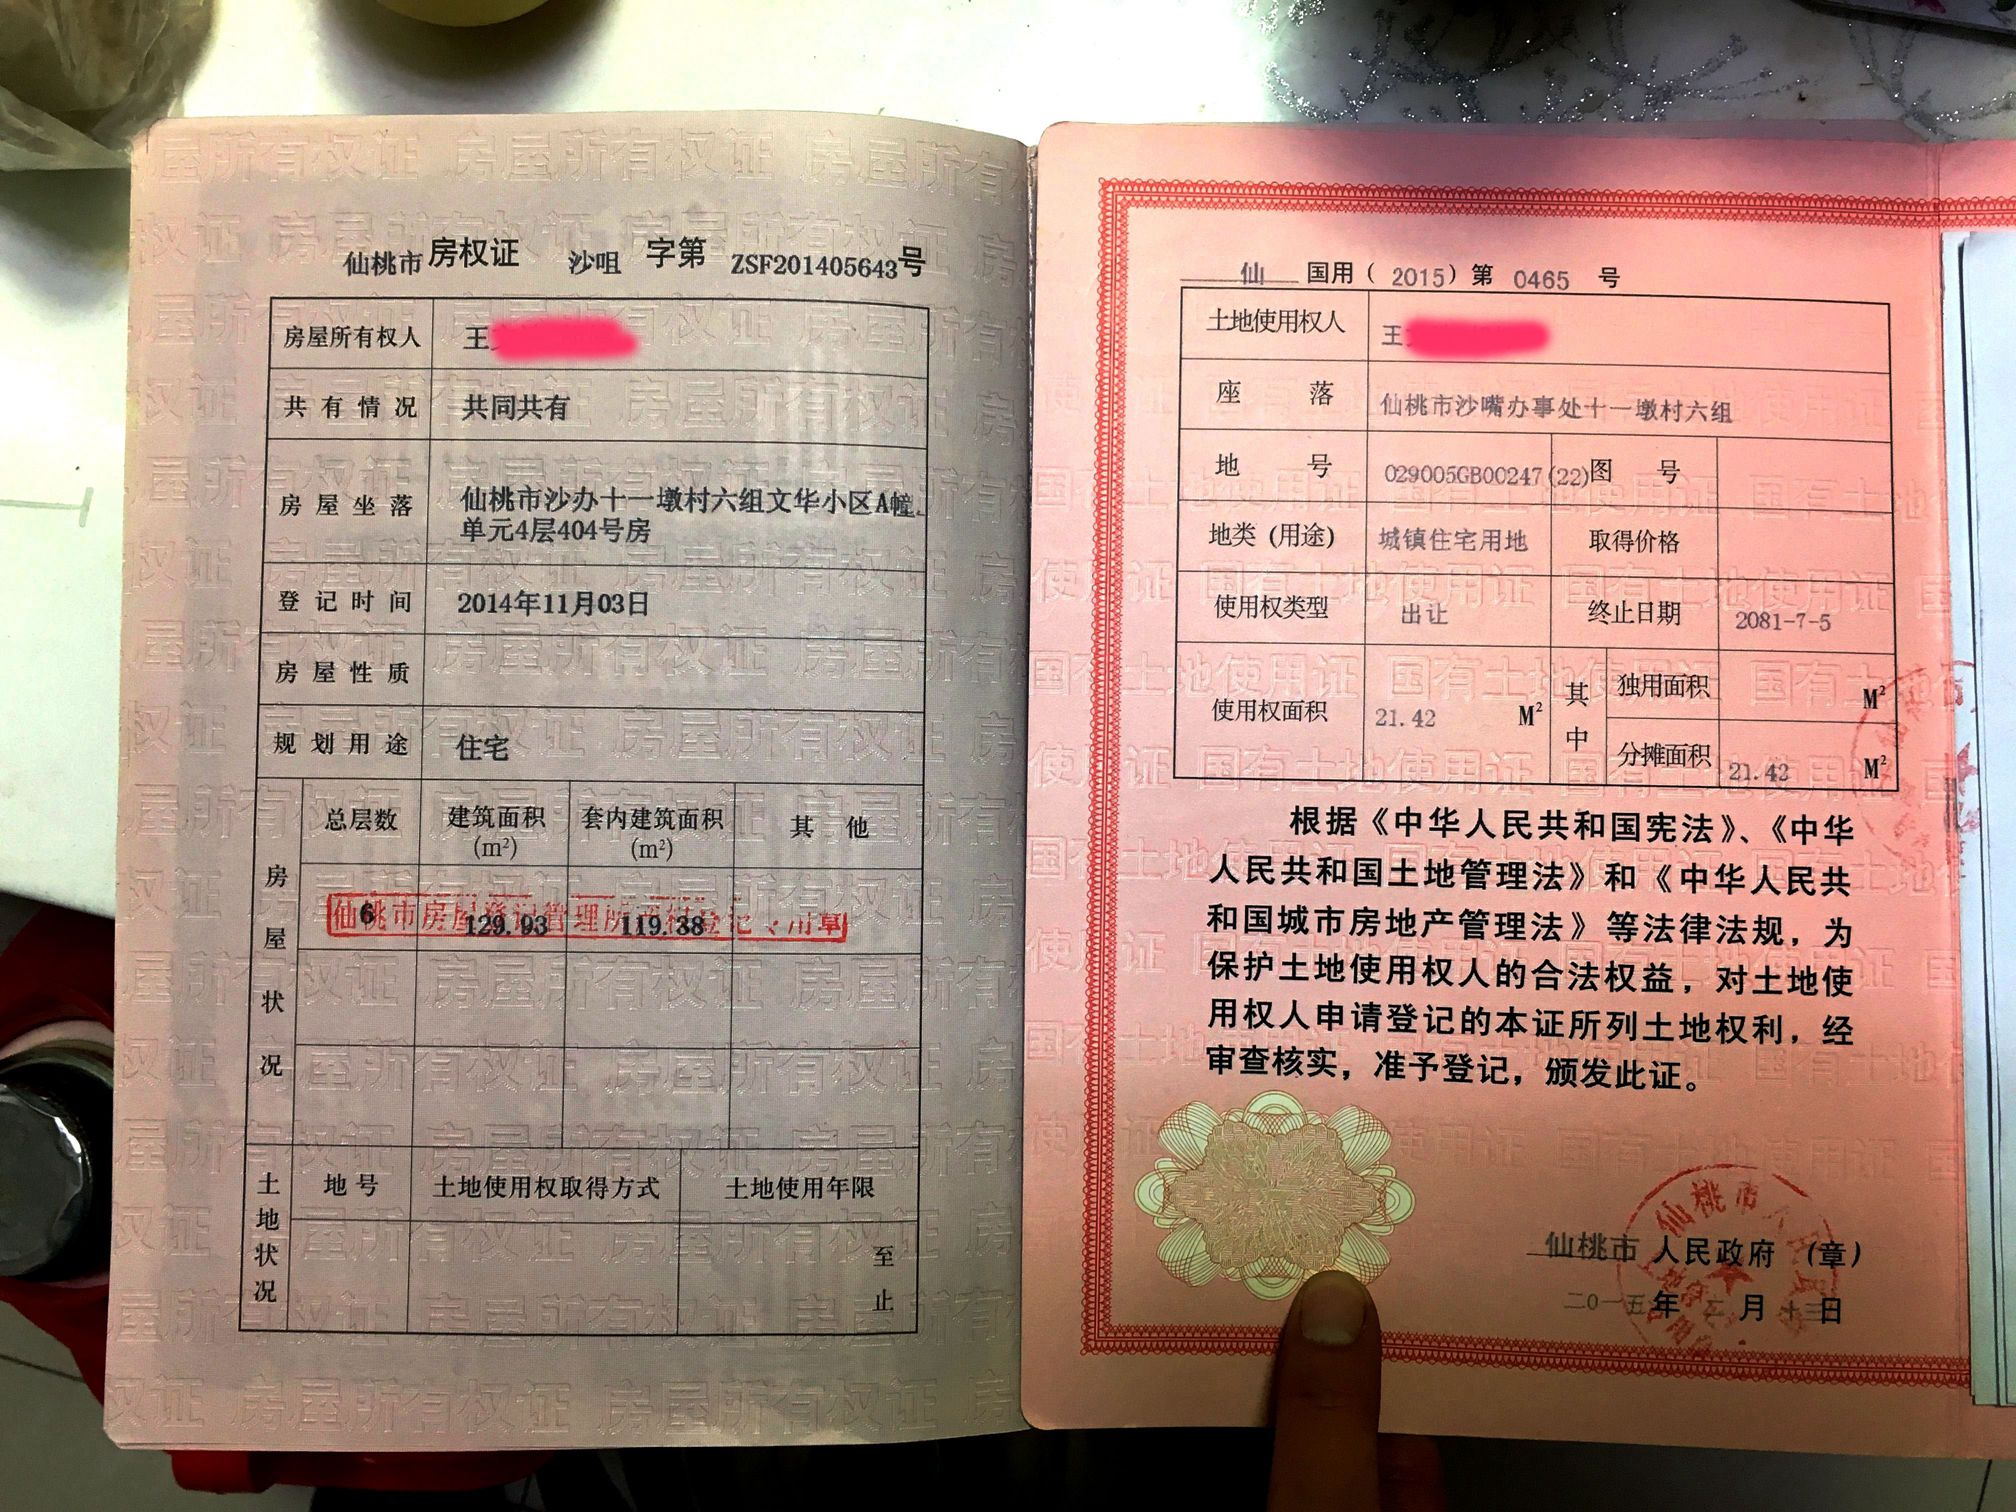 仙桃市房权证 沙咀 字第 ZSF201405643号
房屋所有权人 王
共有情况 共同共有
房屋坐落 仙桃市沙办十一墩村六组文华小区A幢
单元4层404号房
登记时间 2014年11月03日
房屋性质
规划用途 住宅
房屋状况
总层数 建筑面积(m²) 套内建筑面积(m²) 其他
6 129.93 119.38
仙桃市房屋登记管理所
土地状况
地号 土地使用权取得方式 土地使用年限
至
止
仙 国用(2015)第 0465 号
土地使用权人 王
座落 仙桃市沙嘴办事处十一墩村六组
地号 029005GB00247(22) 图号
地类(用途) 城镇住宅用地 取得价格
使用权类型 出让 终止日期 2081-7-5
使用权面积 21.42 M² 其中 独用面积 M²
分摊面积 21.42 M²
根据《中华人民共和国宪法》、《中华
人民共和国土地管理法》和《中华人民共
和国城市房地产管理法》等法律法规，为
保护土地使用权人的合法权益，对土地使
用权人申请登记的本证所列土地权利，经
审查核实，准予登记，颁发此证。
仙桃市人民政府（章）
二0一五年 月十三日